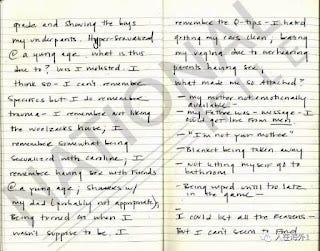 grade and showing the boys
my underpants. Hyper-sexualized
@ a young age. What is this
due to? Was I molested. I
think so - I can't remember
specifics but I do remember
trauma - I remember not liking
the woolzacks house; I
remember somewhat being
sexualized with caroline; I
remember having sex with friends
@ a young age; showers w/
my dad (probably not appropriate).
Being turned on when I
wasn't suppose to be. I
remember the Q-tips - I hated
getting my ears clean,
my vagina due to overhearing
parents having sex,
What made me so attached?
- my mother not emotionally
available -
- my father was - message - I
could get love from men
- "I'm not your mother"
- Blanket being taken away
- not letting myself go to
bathroom
- Being until too late
in the game -
-
I could list all the reasons -
But I can't seem to find
人在海外1